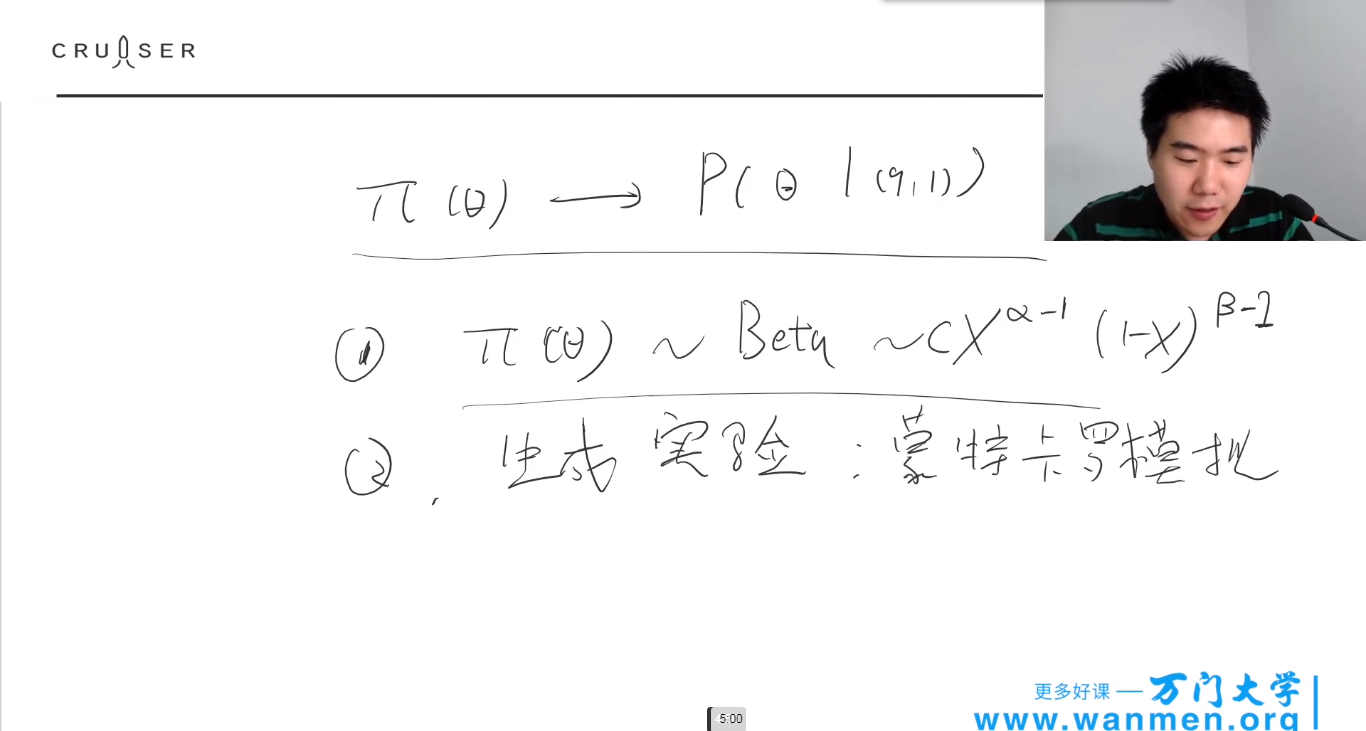 CRUISER
π(θ) → P(θ | (9,1))
① π(θ) ~ Beta ~ CX^α-1 (1-X)^β-1
② 生成实验：蒙特卡罗模拟
更多好课 — 万门大学
www.wanmen.org
5:00